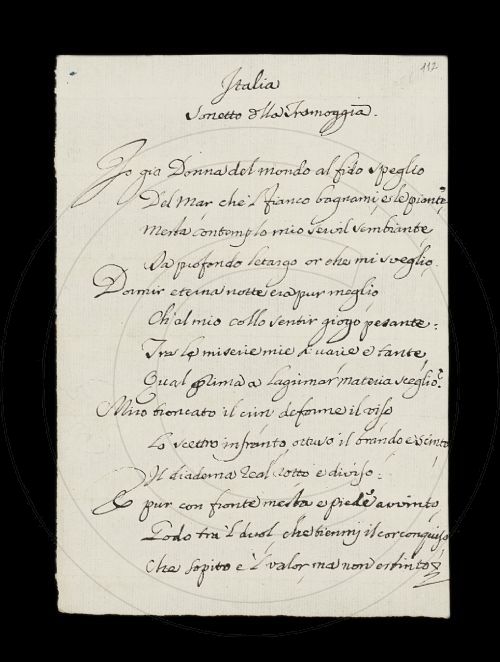 112
Italia
Sonetto della Tramoggia.
Io già Donna del mondo al fido speglio
Del mar che 'l fianco bagnami, e le piante,
Mesta contemplo mio servil sembiante
Da profondo letargo or che mi sveglio.
Dormir eterna notte era pur meglio
Ch' al mio collo sentir giogo pesante:
Tra le miserie mie sì varie e tante,
Qual prima a lagrimar materia sceglio?
Miro troncato il crin deforme il viso
Lo scettro infranto, ottuso il brando e scinto
Il diadema real rotto e diviso:
E pur con fronte mesta e piede avvinto,
Godo tra 'l duol, che tienmi il cor conquiso
Che sopito e 'l valor, ma non estinto